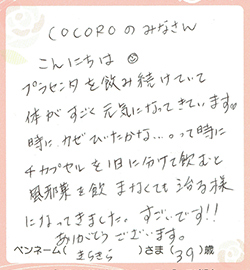 COCOROのみなさん
こんにちは
プラセンタを飲み続けていて
体がすごく元気になってきています♡
時にカゼひいたかな…。って時に
チカプセルを1日に分けて飲むと
風邪薬を飲まなくても治る様
になってきました。すごいです!!
ありがとうございます。
ペンネーム(きらきら)さま(39)歳